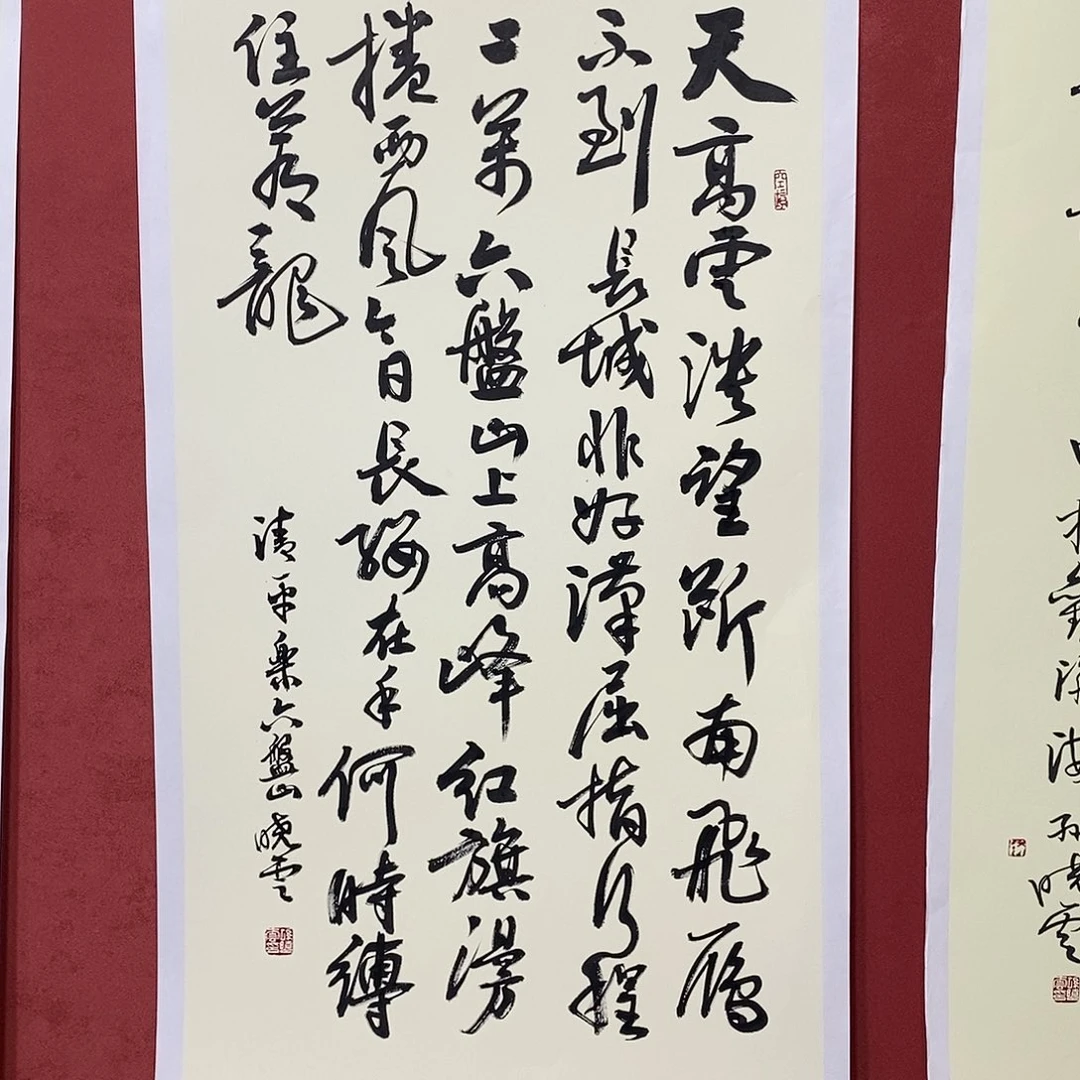 天高雲淡望斷南飛雁
不到長城非好漢屈指行程
二萬六盤山上高峰紅旗漫
捲西風今日長纓在手何時縛
住蒼龍
清平樂六盤山曉雲
觀滄海孫曉雲